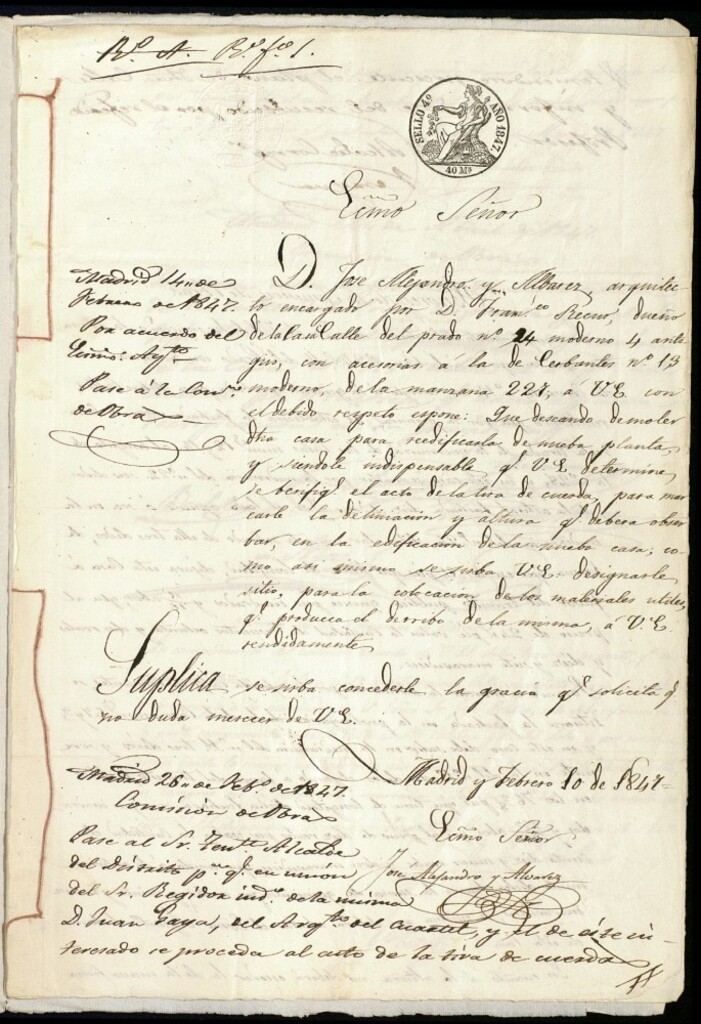 Rº A. Rº fº 1.
SELLO 4º AÑO 1847.
40 Mº
Excmo Señor
D. Jose Alejandro y Albarez, arquitec-
to encargado por D. Franco Recur, dueño
de la Casa Calle del prado nº 24 moderno 4 anti
guo, con acesorias á la de Cerbantes nº 13
moderno, de la manzana 227, á V.E. con
el debido respeto espone: Que deseando demoler
dha casa para reedificarla de nueba planta,
y siendole indispensable q.e V.E. determine
se berifiq.e el acto de la tira de cuerda, para mar
carle la deliniacion y altura q.e debera obser
bar, en la edificacion de la nueba casa; co
mo asi mismo se sirba V.E. designarle
sitio, para la colocacion de los materiales utiles,
q.e produzca el derribo de la misma, á V.E.
rendidamente
Suplica se sirba concederle la gracia q.e solicita q.e
no duda merecer de V.E.
Madrid y Febrero 10 de 1847
Excmo Señor
José Alejandro y Alvarez
Madrid 14 de
Febrero de 1847.
Por acuerdo del
Excmo. Ayto
Pase á la Comn
de Obras
Madrid 26 de Febº de 1847.
Comision de Obras
Pase al Sr. Tente Alcalde
del Distrito pa q.e en union
del Sr. Regidor indº de la misma
D. Juan Gaya, del Arqto del Cuartel, y el de este in-
teresado se proceda al acto de la tira de cuerda